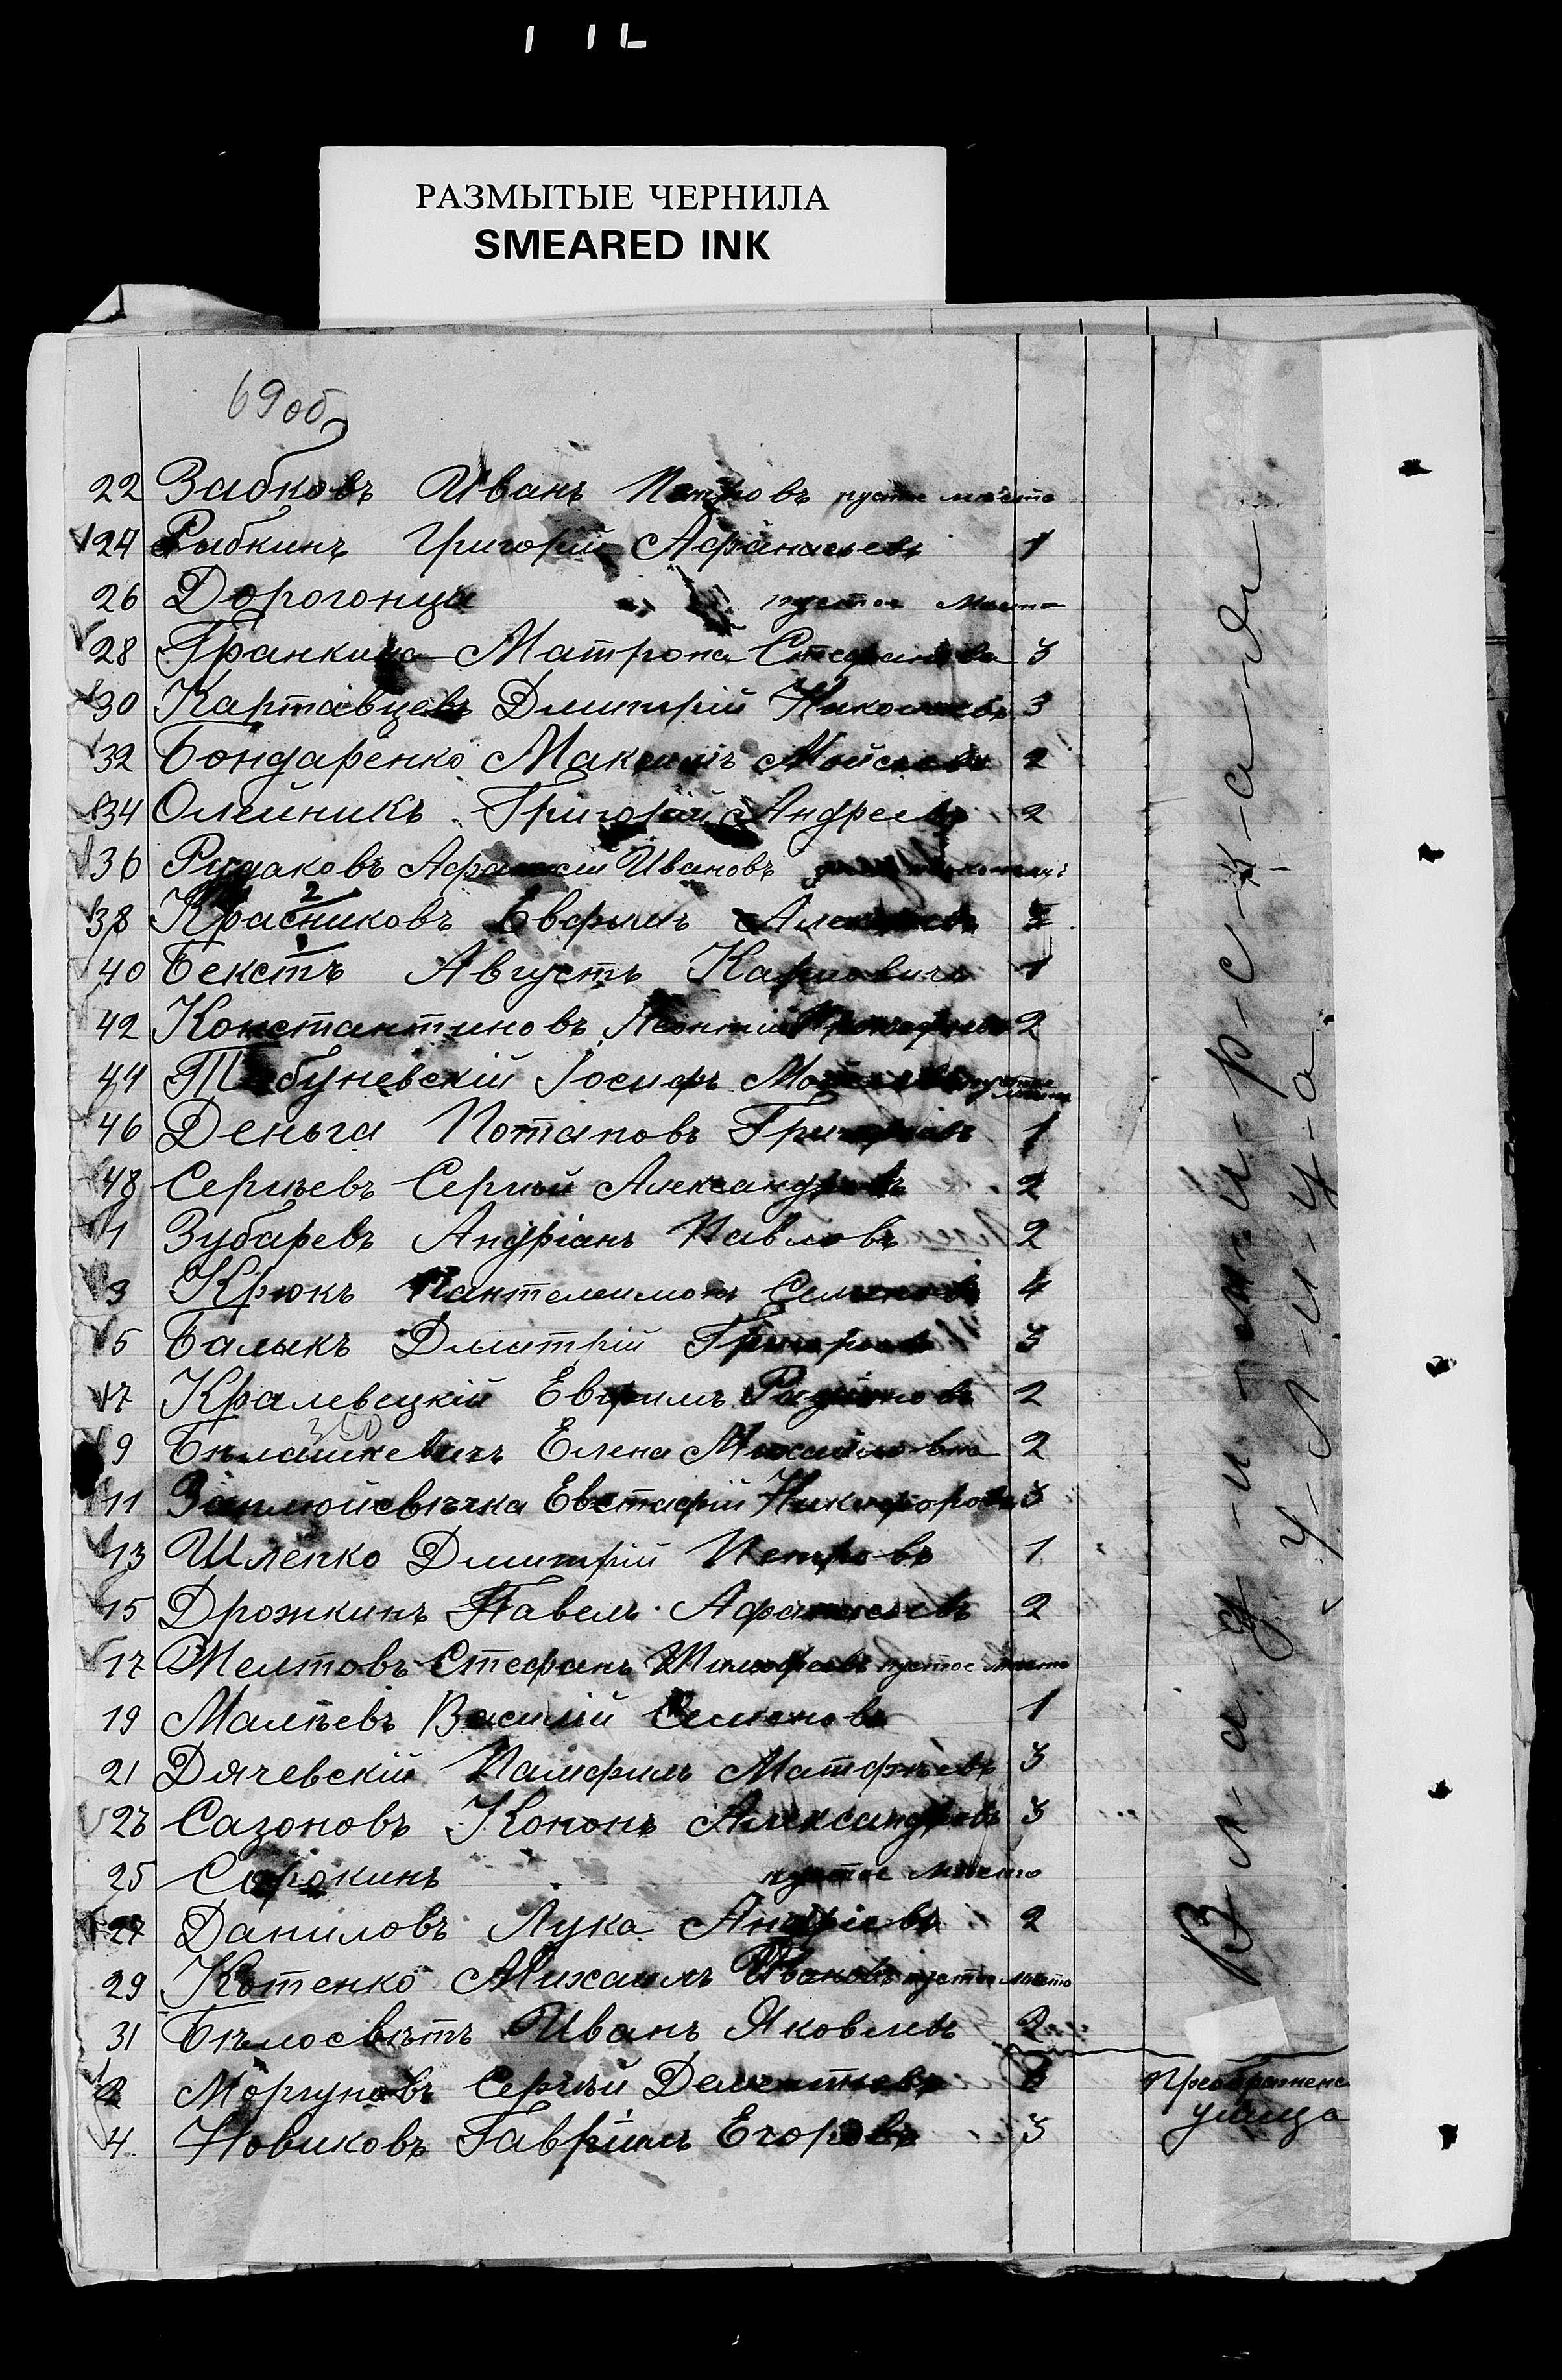 РАЗМЫТЫЕ ЧЕРНИЛА
SMEARED INK
69 об
22 Забковъ Иванъ Петровъ пустое мѣсто
24 Рыбкинъ Григорій Афанасьевъ 1
26 Дорогонцы пустое мѣсто
28 Гранкина Матрона Стефанова 3
30 Картавцевъ Дмитрій Николаевъ 3
32 Бондаренко Максимъ Мойсеевъ 2
34 Олейникъ Григорій Андреевъ 2
36 Рудаковъ Афанасій Ивановъ
38 Красниковъ Евфимъ 2
40 Бекстъ Августъ Карловичъ 1
42 Константиновъ Леонтій Прокофьевъ 2
44 Іосифъ пустое мѣсто
46 Деньга Потаповъ Григорій 1
48 Сергѣевъ Сергѣй Александровъ 2
1 Зубаревъ Андріанъ Павловъ 2
3 Крюкъ Пантелеимонъ Семеновъ 4
5 Балыкъ Дмитрій Григорьевъ 3
7 Кралевецкій Евфимъ Радіоновъ 2
9 Бѣлашкевичъ Елена Михайловна 2
11 Евстафій Никифоровъ 3
13 Шлепко Дмитрій Петровъ 1
15 Дрожкинъ Павелъ Афанасьевъ 2
17 Желтовъ Стефанъ Тимофеевъ пустое мѣсто
19 Малѣевъ Василій Семеновъ 1
21 Дячевскій Памфилъ Матфѣевъ 3
23 Сазоновъ Кононъ Александровъ 3
25 Сорокинъ пустое мѣсто
27 Даниловъ Лука Андріевъ 2
29 Котенко Михаилъ Ивановъ пустое мѣсто
31 Бѣлосвѣтъ Иванъ Яковлевъ 2
2 Моргуновъ Сергѣй Дементьевъ
4 Новиковъ Гавріилъ Егоровъ 3
В-л-а-д-и-м-и-р-с-к-а-я
у-л-и-ц-а
Преображенс
улица